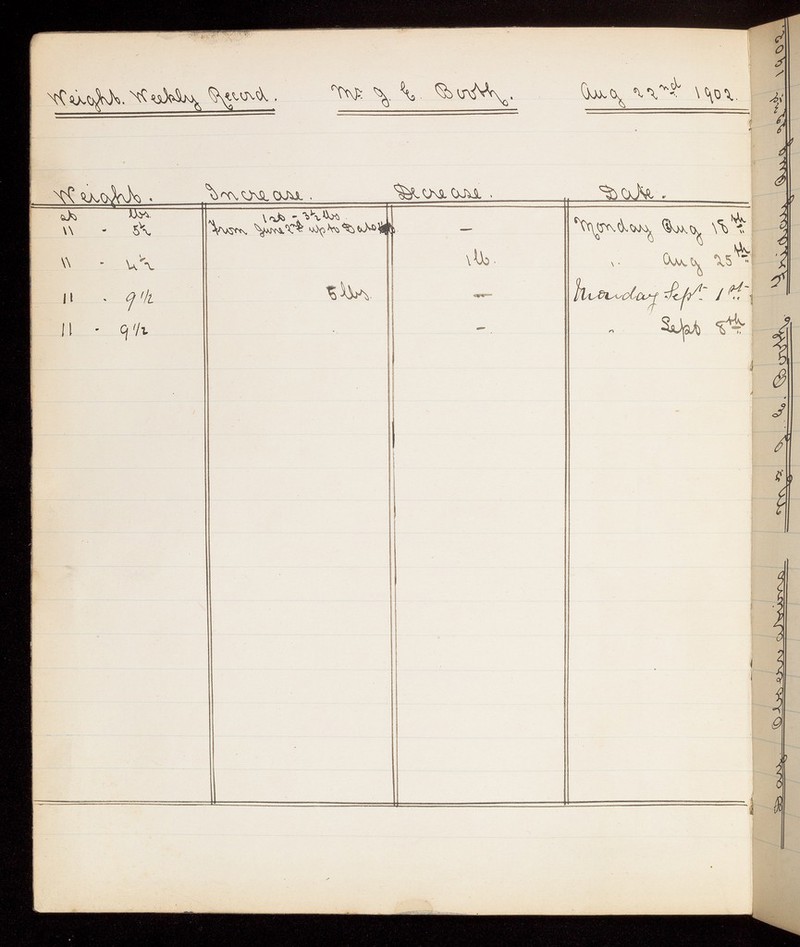 Weight. Weekly Record. Mr. J E. Booth. Aug 22nd 1902.
Weight. Increase. Decrease. Date.
st lbs 1st - 3½ lbs
11 - 5½ From June 2nd up to Date — Monday Aug 18th
11 - 4½ 1 lb. " Aug 25th
11 - 9½ 5 lbs. — Monday Sept 1st
11 - 9½ - " Sept 8th
Day Observations Mr. J. E. Booth. Friday Aug 22nd 1902.